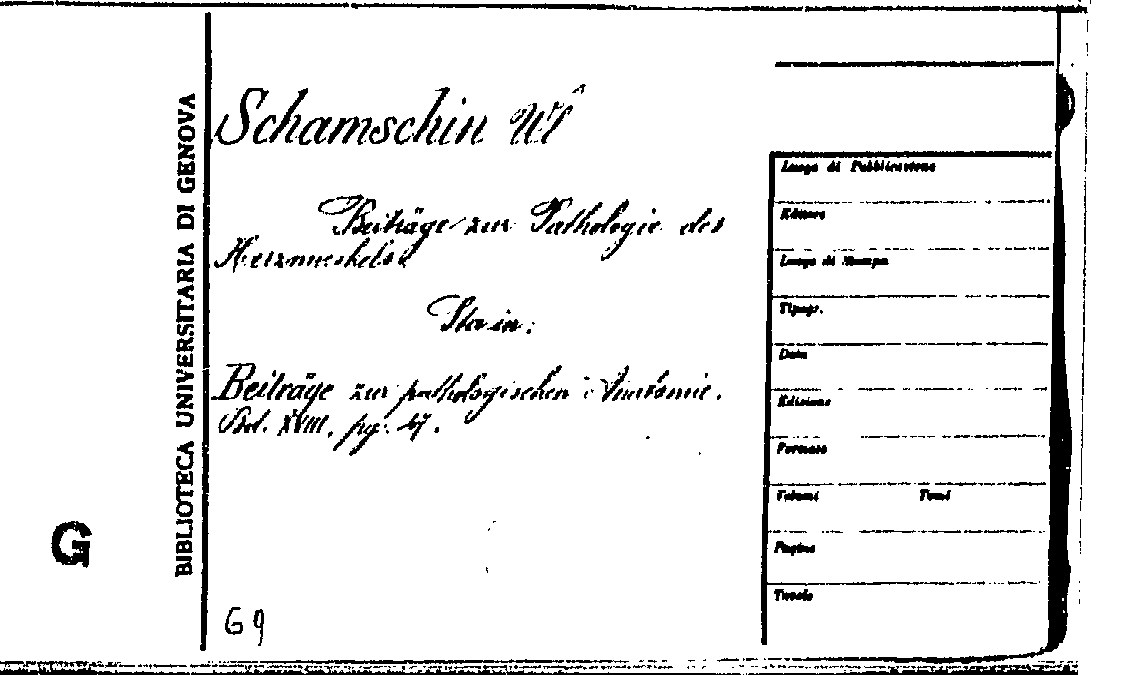 BIBLIOTECA UNIVERSITARIA DI GENOVA
G
Schamschin Wl
Beiträge zur Pathologie des
Herzmuskels.
Sta in:
Beiträge zur pathologischen Anatomie.
Bd. XVIII. pg. 47.
G 9
Luogo di Pubblicazione
Editore
Luogo di Stampa
Tipogr.
Data
Edizione
Formato
Volumi Tomi
Pagine
Tavole